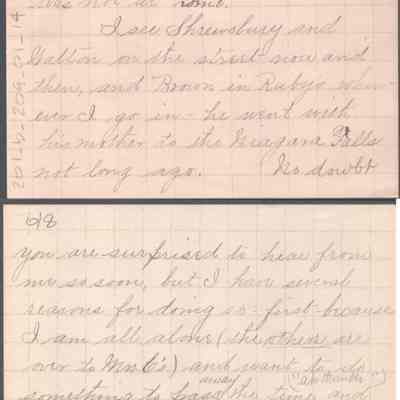 was not at home.
I see Shrewsbury and
Dalton on the street now and
then, and Brown in Rubys when-
ever I go in - he went with
his mother to the Niagara Falls
not long ago. No doubt
you are surprised to hear from
me so soon, but I have several
reasons for doing so - first because
I am all alone (the others are
over to Mrs C's.) and want to do
something to pass away the time and